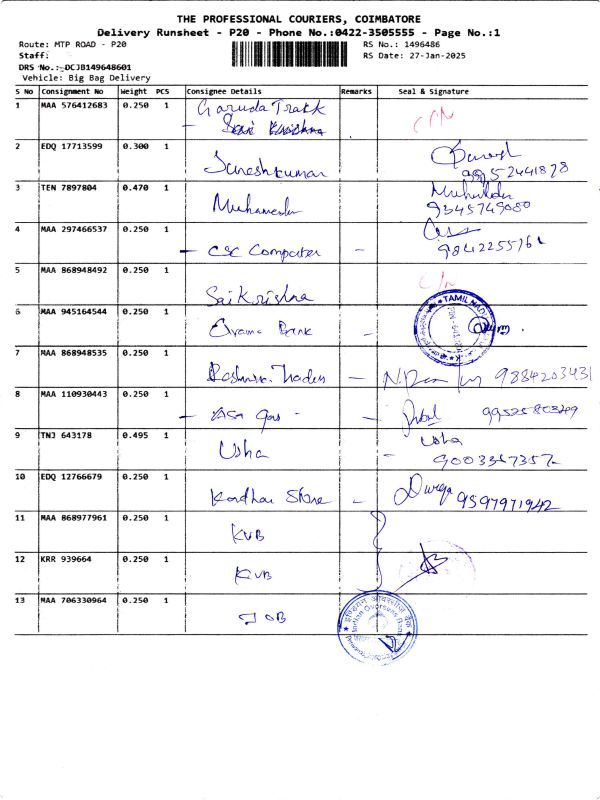 THE PROFESSIONAL COURIERS, COIMBATORE
Delivery Runsheet - P20 - Phone No.:0422-3505555 - Page No.:1
Route: MTP ROAD - P20 RS No.: 1496486
Staff: RS Date: 27-Jan-2025
DRS No.:-DCJB149648601
Vehicle: Big Bag Delivery
S No Consignment No Weight PCS Consignee Details Remarks Seal & Signature
1 MAA 576412683 0.250 1 Garuda Trakk
2 EDQ 17713599 0.300 1 Sureshkumar Suresh
3 TEN 7897804 0.470 1
9345749080
4 MAA 297466537 0.250 1 - CSC Computer -
5 MAA 868948492 0.250 1 Sai Krishna
TAMIL NADU
6 MAA 945164544 0.250 1 Grama Bank -
7 MAA 868948535 0.250 1 -
8 MAA 110930443 0.250 1 -
9 TNJ 643178 0.495 1 Usha - Usha
9003357357
10 EDQ 12766679 0.250 1 Store - Durga 9597971942
11 MAA 868977961 0.250 1 KVB
12 KRR 939664 0.250 1 KVB
13 MAA 706330964 0.250 1 IOB
Indian Overseas Bank